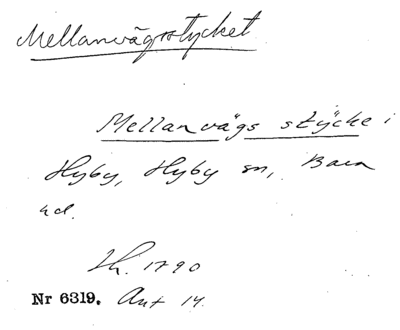 Mellanvägsstycket
Mellanvägs stÿcke i
Hyby, Hyby sn, Bara
hd.
Lh. 1790
Nr 6319. Ant 14.